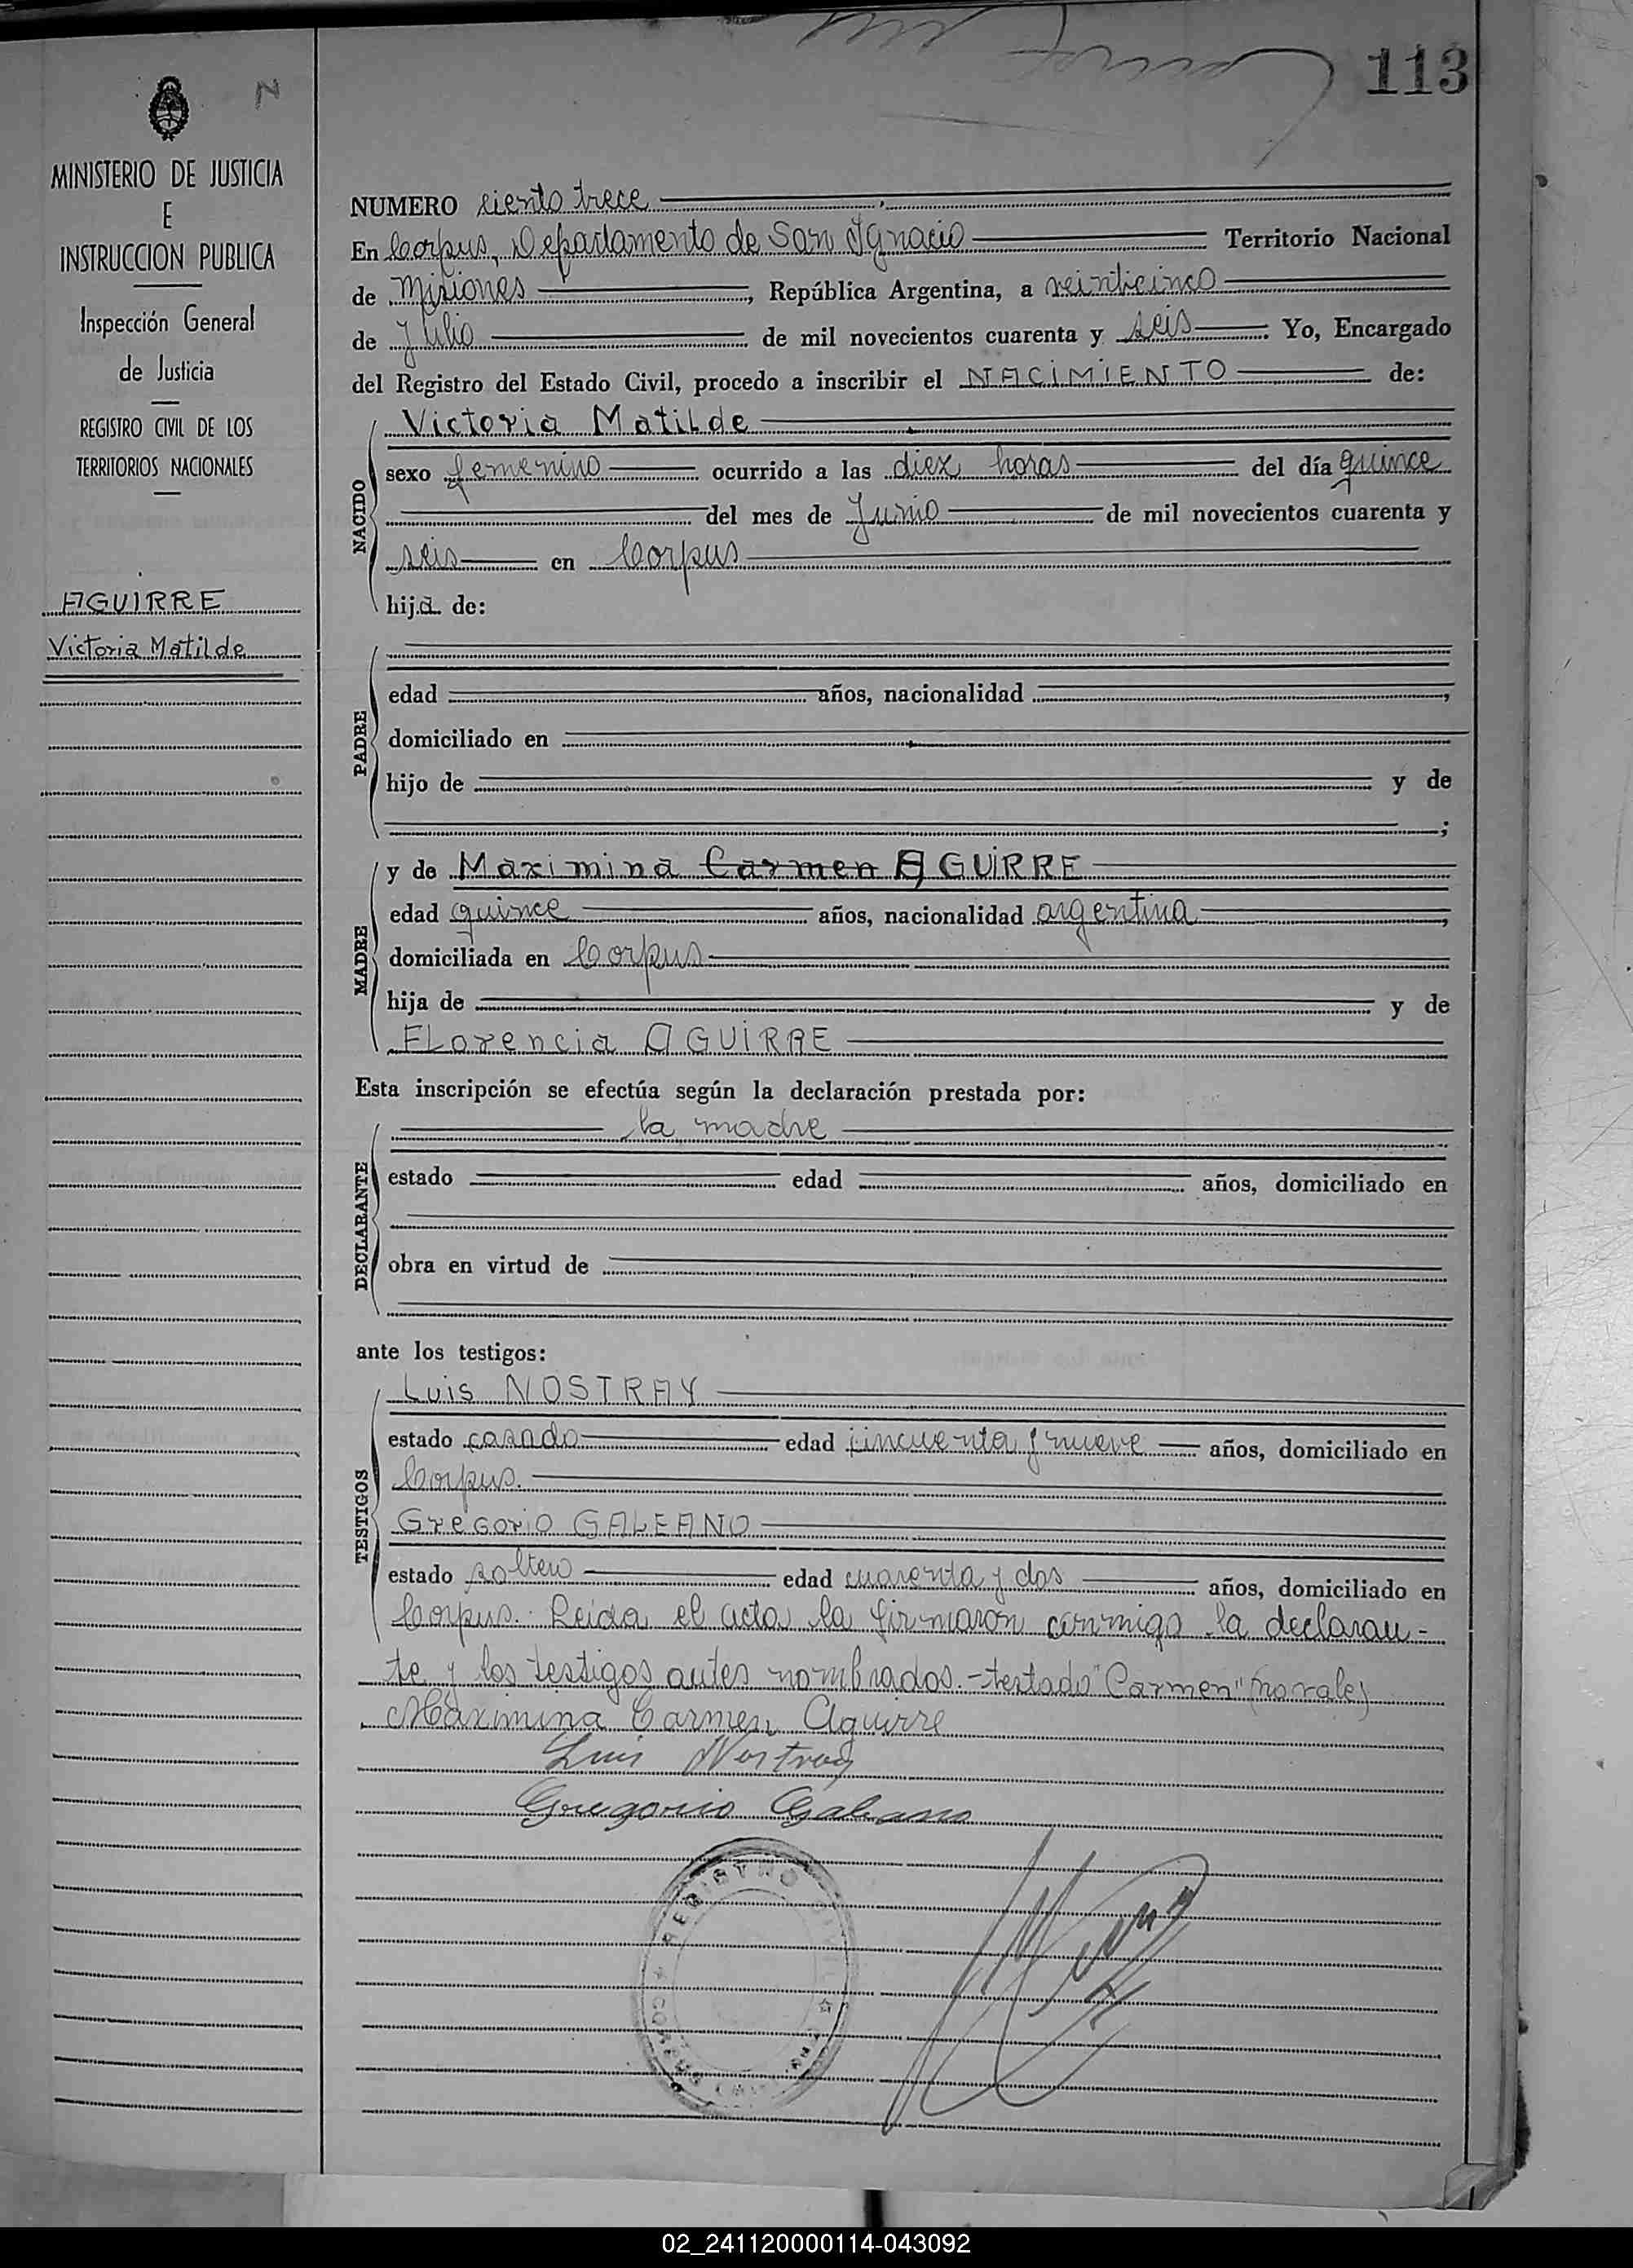 113
N
MINISTERIO DE JUSTICIA
E
INSTRUCCION PUBLICA
Inspección General
de Justicia
REGISTRO CIVIL DE LOS
TERRITORIOS NACIONALES
AGUIRRE
Victoria Matilde
NUMERO ciento trece
En Corpus, Departamento de San Ignacio Territorio Nacional
de Misiones, República Argentina, a veinticinco
de Julio de mil novecientos cuarenta y seis. Yo, Encargado
del Registro del Estado Civil, procedo a inscribir el NACIMIENTO de:
NACIDO
Victoria Matilde
sexo femenino ocurrido a las diez horas del día quince
del mes de Junio de mil novecientos cuarenta y
seis en Corpus
hija de:
PADRE
edad años, nacionalidad ,
domiciliado en
hijo de y de
;
MADRE
y de Maximina Carmen AGUIRRE
edad quince años, nacionalidad argentina,
domiciliada en Corpus
hija de y de
Florencia AGUIRRE
Esta inscripción se efectúa según la declaración prestada por:
DECLARANTE
la madre
estado edad años, domiciliado en
obra en virtud de
ante los testigos:
TESTIGOS
Luis NOSTRAY
estado casado edad cincuenta y nueve años, domiciliado en
Corpus.
Gregorio GALEANO
estado soltero edad cuarenta y dos años, domiciliado en
Corpus. Leída el acta la firmaron conmigo la declaran-
te y los testigos antes nombrados.-testado "Carmen" (no vale)
Maximina Carmen Aguirre
Luis Nostray
Gregorio Galeano
REGISTRO CIVIL
CORPUS
02_241120000114-043092